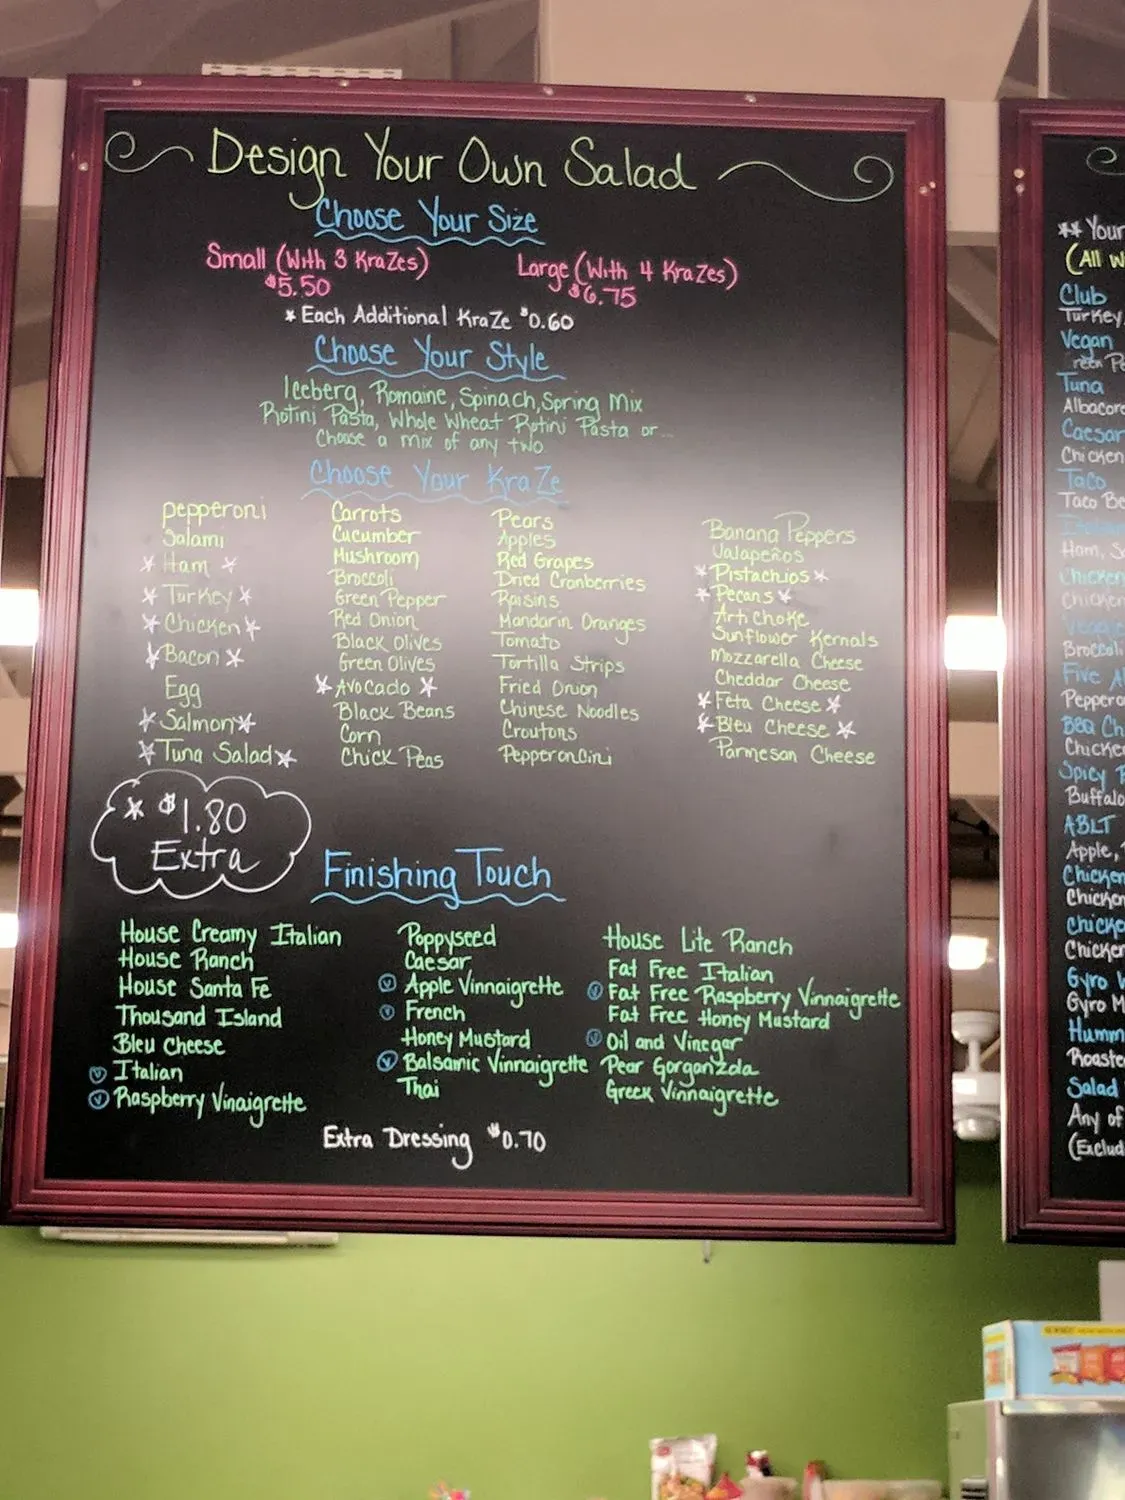 Design Your Own Salad
Choose Your Size
Small (With 3 KraZes)
$5.50
Large (With 4 KraZes)
$6.75
* Each Additional KraZe $0.60
Choose Your Style
Iceberg, Romaine, Spinach, Spring Mix
Rotini Pasta, Whole Wheat Rotini Pasta or...
Choose a mix of any two
Choose Your KraZe
pepperoni
Salami
* Ham *
* Turkey *
* Chicken *
* Bacon *
Egg
* Salmon *
* Tuna Salad *
Carrots
Cucumber
Mushroom
Broccoli
Green Pepper
Red Onion
Black Olives
Green Olives
* Avocado *
Black Beans
Corn
Chick Peas
Pears
Apples
Red Grapes
Dried Cranberries
Raisins
Mandarin Oranges
Tomato
Tortilla Strips
Fried Onion
Chinese Noodles
Croutons
Pepperoncini
Banana Peppers
Jalapeños
* Pistachios *
* Pecans *
Artichoke
Sunflower Kernals
Mozzarella Cheese
Cheddar Cheese
* Feta Cheese *
* Bleu Cheese *
Parmesan Cheese
* $1.80
Extra
Finishing Touch
House Creamy Italian
House Ranch
House Santa Fe
Thousand Island
Bleu Cheese
V Italian
V Raspberry Vinaigrette
Poppyseed
Caesar
V Apple Vinnaigrette
V French
Honey Mustard
V Balsamic Vinnaigrette
Thai
House Lite Ranch
Fat Free Italian
V Fat Free Raspberry Vinnaigrette
Fat Free Honey Mustard
V Oil and Vinegar
Pear Gorganzola
Greek Vinnaigrette
Extra Dressing $0.70
** Your
(All W
Club
Turkey,
Vegan
Tuna
Albacore
Caesar
Chicken
Taco
Taco Be
Ham, Sa
Chicken
Chicken
Veggie
Broccoli
Five Al
Peppero
BBQ Ch
Chicken
Spicy
Buffalo
ABLT
Apple,
Chicken
Chicken
Chicke
Chicken
Gyro W
Gyro M
Humm
Roaste
Salad
Any of
(Exclud